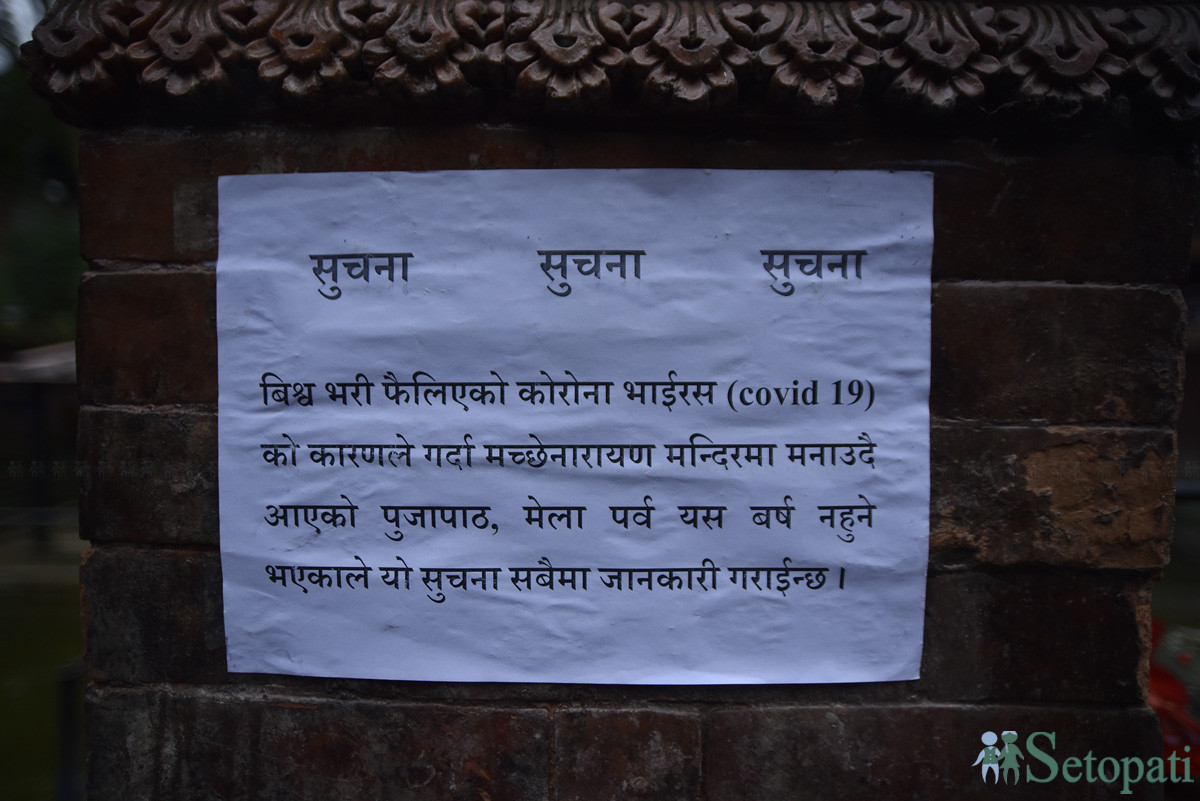 सुचना सुचना सुचना
बिश्व भरी फैलिएको कोरोना भाईरस (covid 19)
को कारणले गर्दा मच्छेनारायण मन्दिरमा मनाउदै
आएको पुजापाठ, मेला पर्व यस बर्ष नहुने
भएकाले यो सुचना सबैमा जानकारी गराईन्छ ।
Setopati